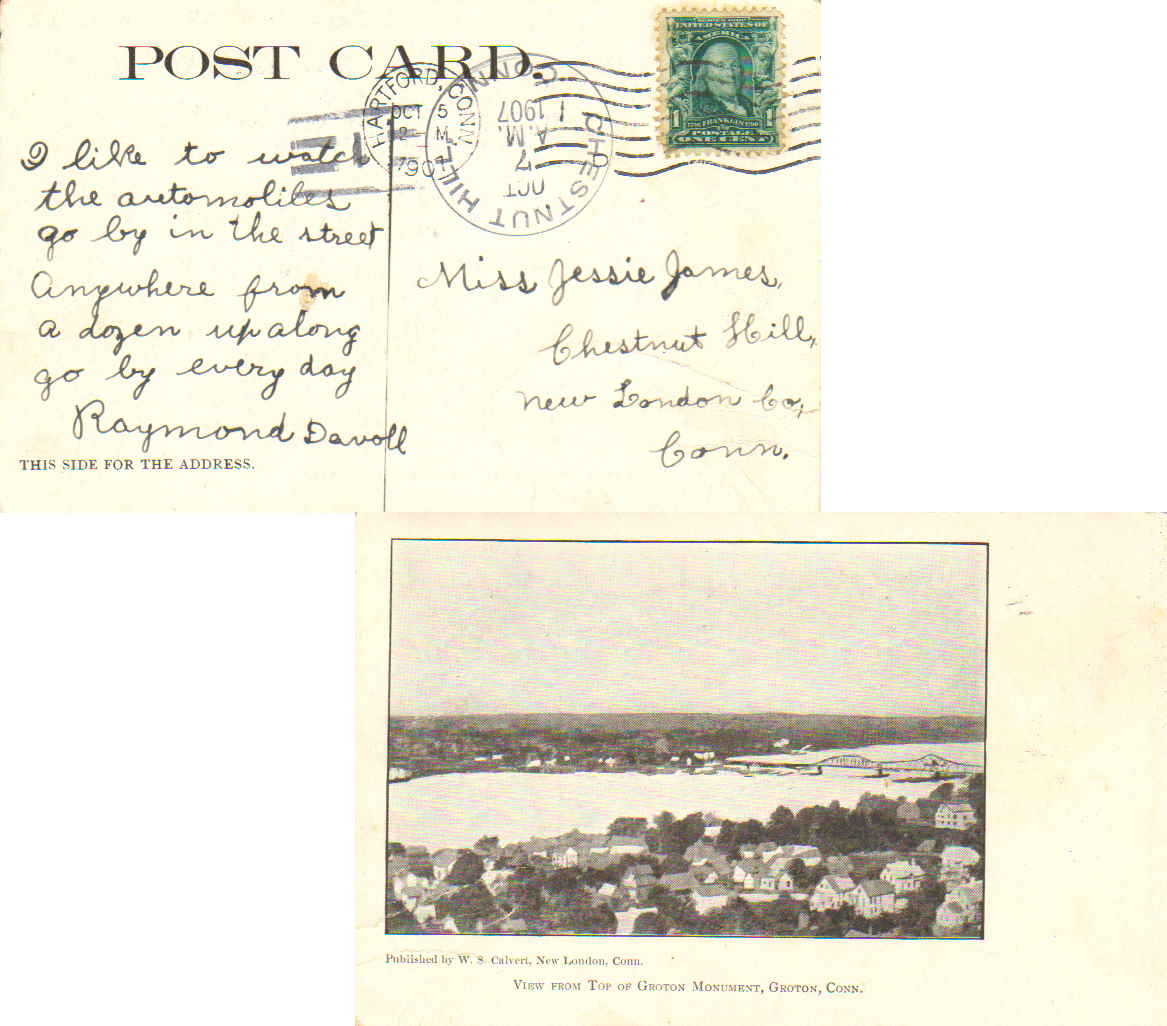 POST CARD.
SERIES 1902
UNITED STATES OF
AMERICA
1 FRANKLIN 1
POSTAGE
ONE CENT
HARTFORD, CONN
OCT 5
2 M
190
CHESTNUT HILL CONN.
OCT
7
A.M.
1907
I like to watch
the automobiles
go by in the street
Anywhere from
a dozen up along
go by every day
Raymond Davoll
THIS SIDE FOR THE ADDRESS.
Miss Jessie James,
Chestnut Hill,
New London Co,
Conn.
Published by W. S. Calvert, New London, Conn.
VIEW FROM TOP OF GROTON MONUMENT, GROTON, CONN.